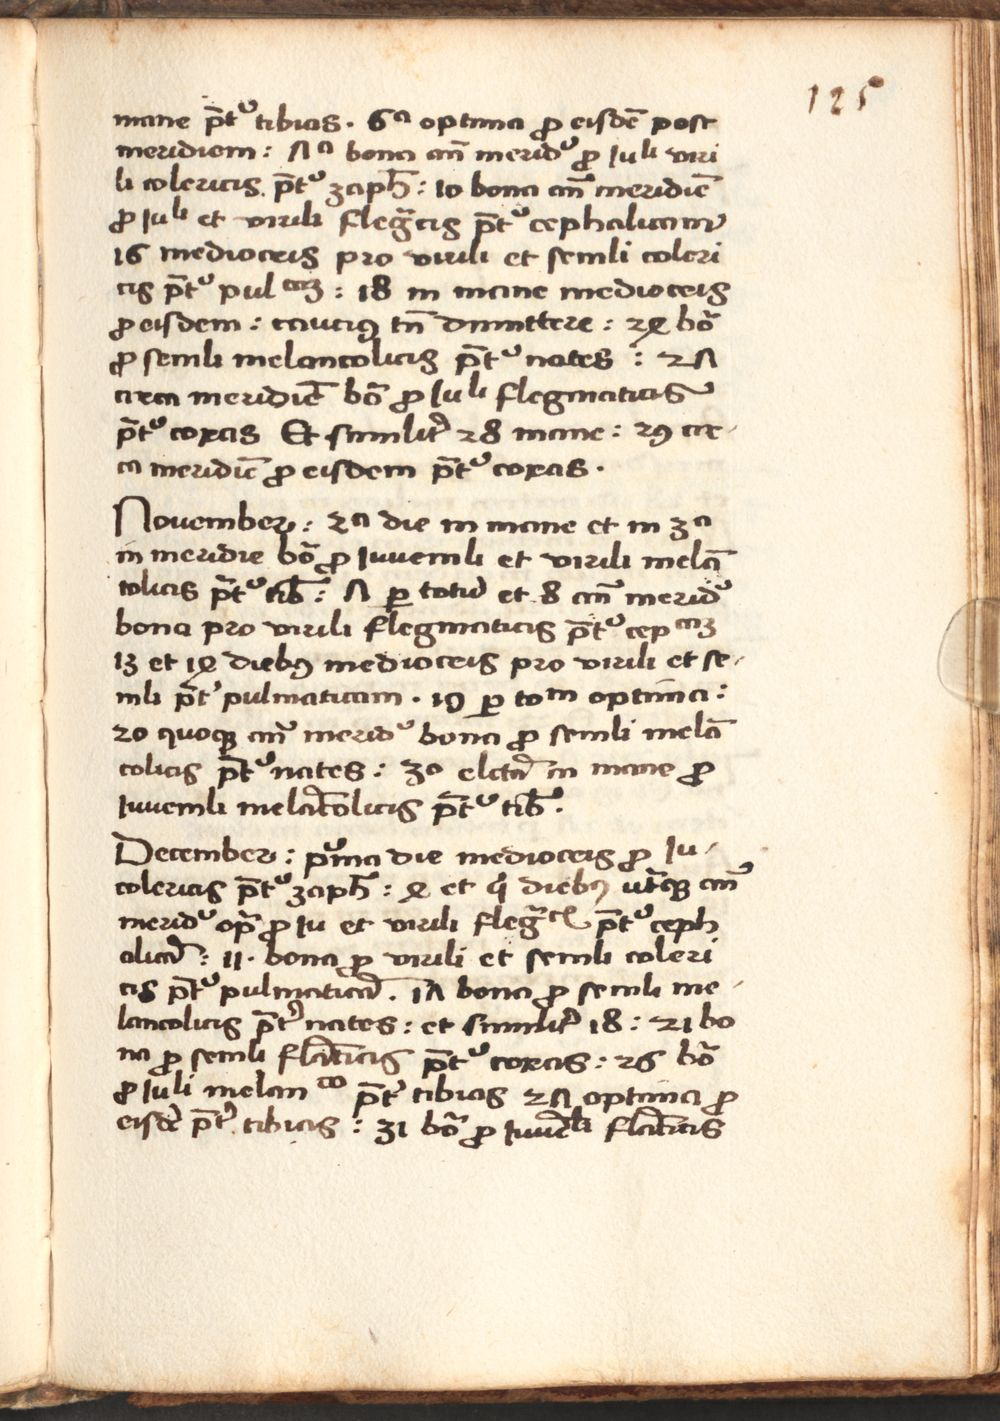 125
mane p̄tꝰ tibias. 6ª optima ꝓ eisdē post
meridiem: 7ª bona an̄ meridꝰ ꝓ Iuˡⁱ viri
li colericis p̄tꝰ zaph̄: 10 bona an̄ meridiē
ꝓ Iuˡⁱ et virili flegm̄cis p̄tꝰ cephalicam
16 mediocris pro virili et senili coleri
cis p̄tꝰ pulᶜᵃᵐ: 18 in mane mediocris
ꝓ eisdem: cauciꝰ tn̄ dimittere: 24 bōa
ꝓ senili melancolicis p̄tꝰ nates: 27
circa meridiē bōa ꝓ Iuˡⁱ flegmaticis
p̄tꝰ coxas Et similit̄ 28 mane: 29 cir-
ca meridiē ꝓ eisdem p̄tꝰ coxas.
November: 2ª die in mane et in 3ª
in meridie bōa ꝓ Iuvenili et virili melā
colicis p̄tꝰ tib̄: 7 ꝑ totū et 8 an̄ meridꝰ
bona pro virili flegmaticis p̄tꝰ cepᶜᵃᵐ
13 et 14 diebꝰ mediocris pro virili et se-
nili p̄tꝰ pulmaticam. 19 ꝑ toᵐ optima:
20 quoqꝫ an̄ meridꝰ bona ꝓ senili melā
colicis p̄tꝰ nates: 30 elctā in mane ꝓ
Iuvenili melācolicis p̄tꝰ tib̄.
December: pͥma die mediocris ꝓ Iu-
colericis p̄tꝰ zaph̄: 4 et qͥ diebꝰ utāqꝫ an̄
meridꝰ opᵃ ꝓ Iu et virili flegm̄ᶜⁱˢ p̄tꝰ ceph
alicā: 11. bona ꝓ virili et senili coleri
cis p̄tꝰ pulmaticā. 17 bona ꝓ senili me-
lancolicis p̄tꝰ nates: et similit̄ 18: 21 bo
na ꝓ senili flāticis p̄tꝰ coxas: 26 bōa
ꝓ Iuli melanᶜᵒ p̄tꝰ tibias 27 optima ꝓ
eisdē p̄tꝰ tibias: 31 bōa ꝓ Iuvēˡⁱ flāticis